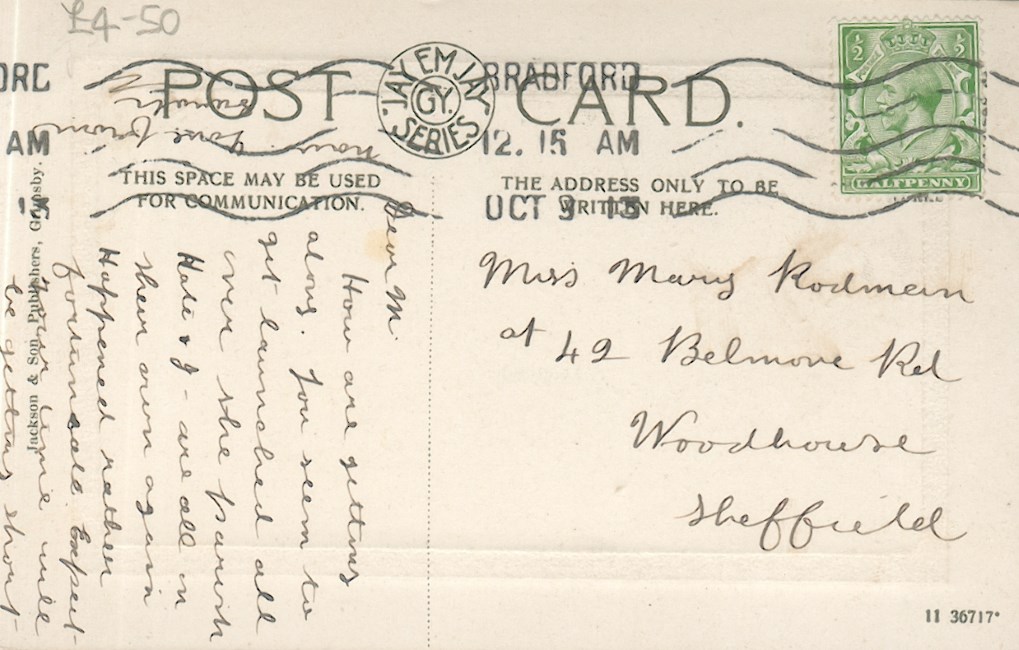 £4-50
POST CARD.
JAY EM JAY
GY.
SERIES
BRADFORD
12. 15 AM
OCT 9 13
ORD
AM
13
½ ½
HALFPENNY
THIS SPACE MAY BE USED
FOR COMMUNICATION.
THE ADDRESS ONLY TO BE
WRITTEN HERE.
Dear M.
How are getting
along. You seem to
get launched all
over the parish
& I - are all in
their own again
Happened rather
Expect-
your time will
be getting short
now. Love from
Miss Mary Rodmein
at 49 Belmove Rd
Woodhouse
Sheffield
Jackson & Son, Publishers, Grimsby.
11 36717*